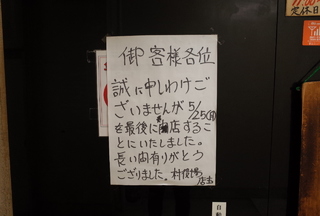 御客様各位
誠に申しわけご
ざいませんが5/25(月)
を最後に閉店するこ
とにいたしました。
長い間有りがとう
ございました。村役場
店主
定休日
自動